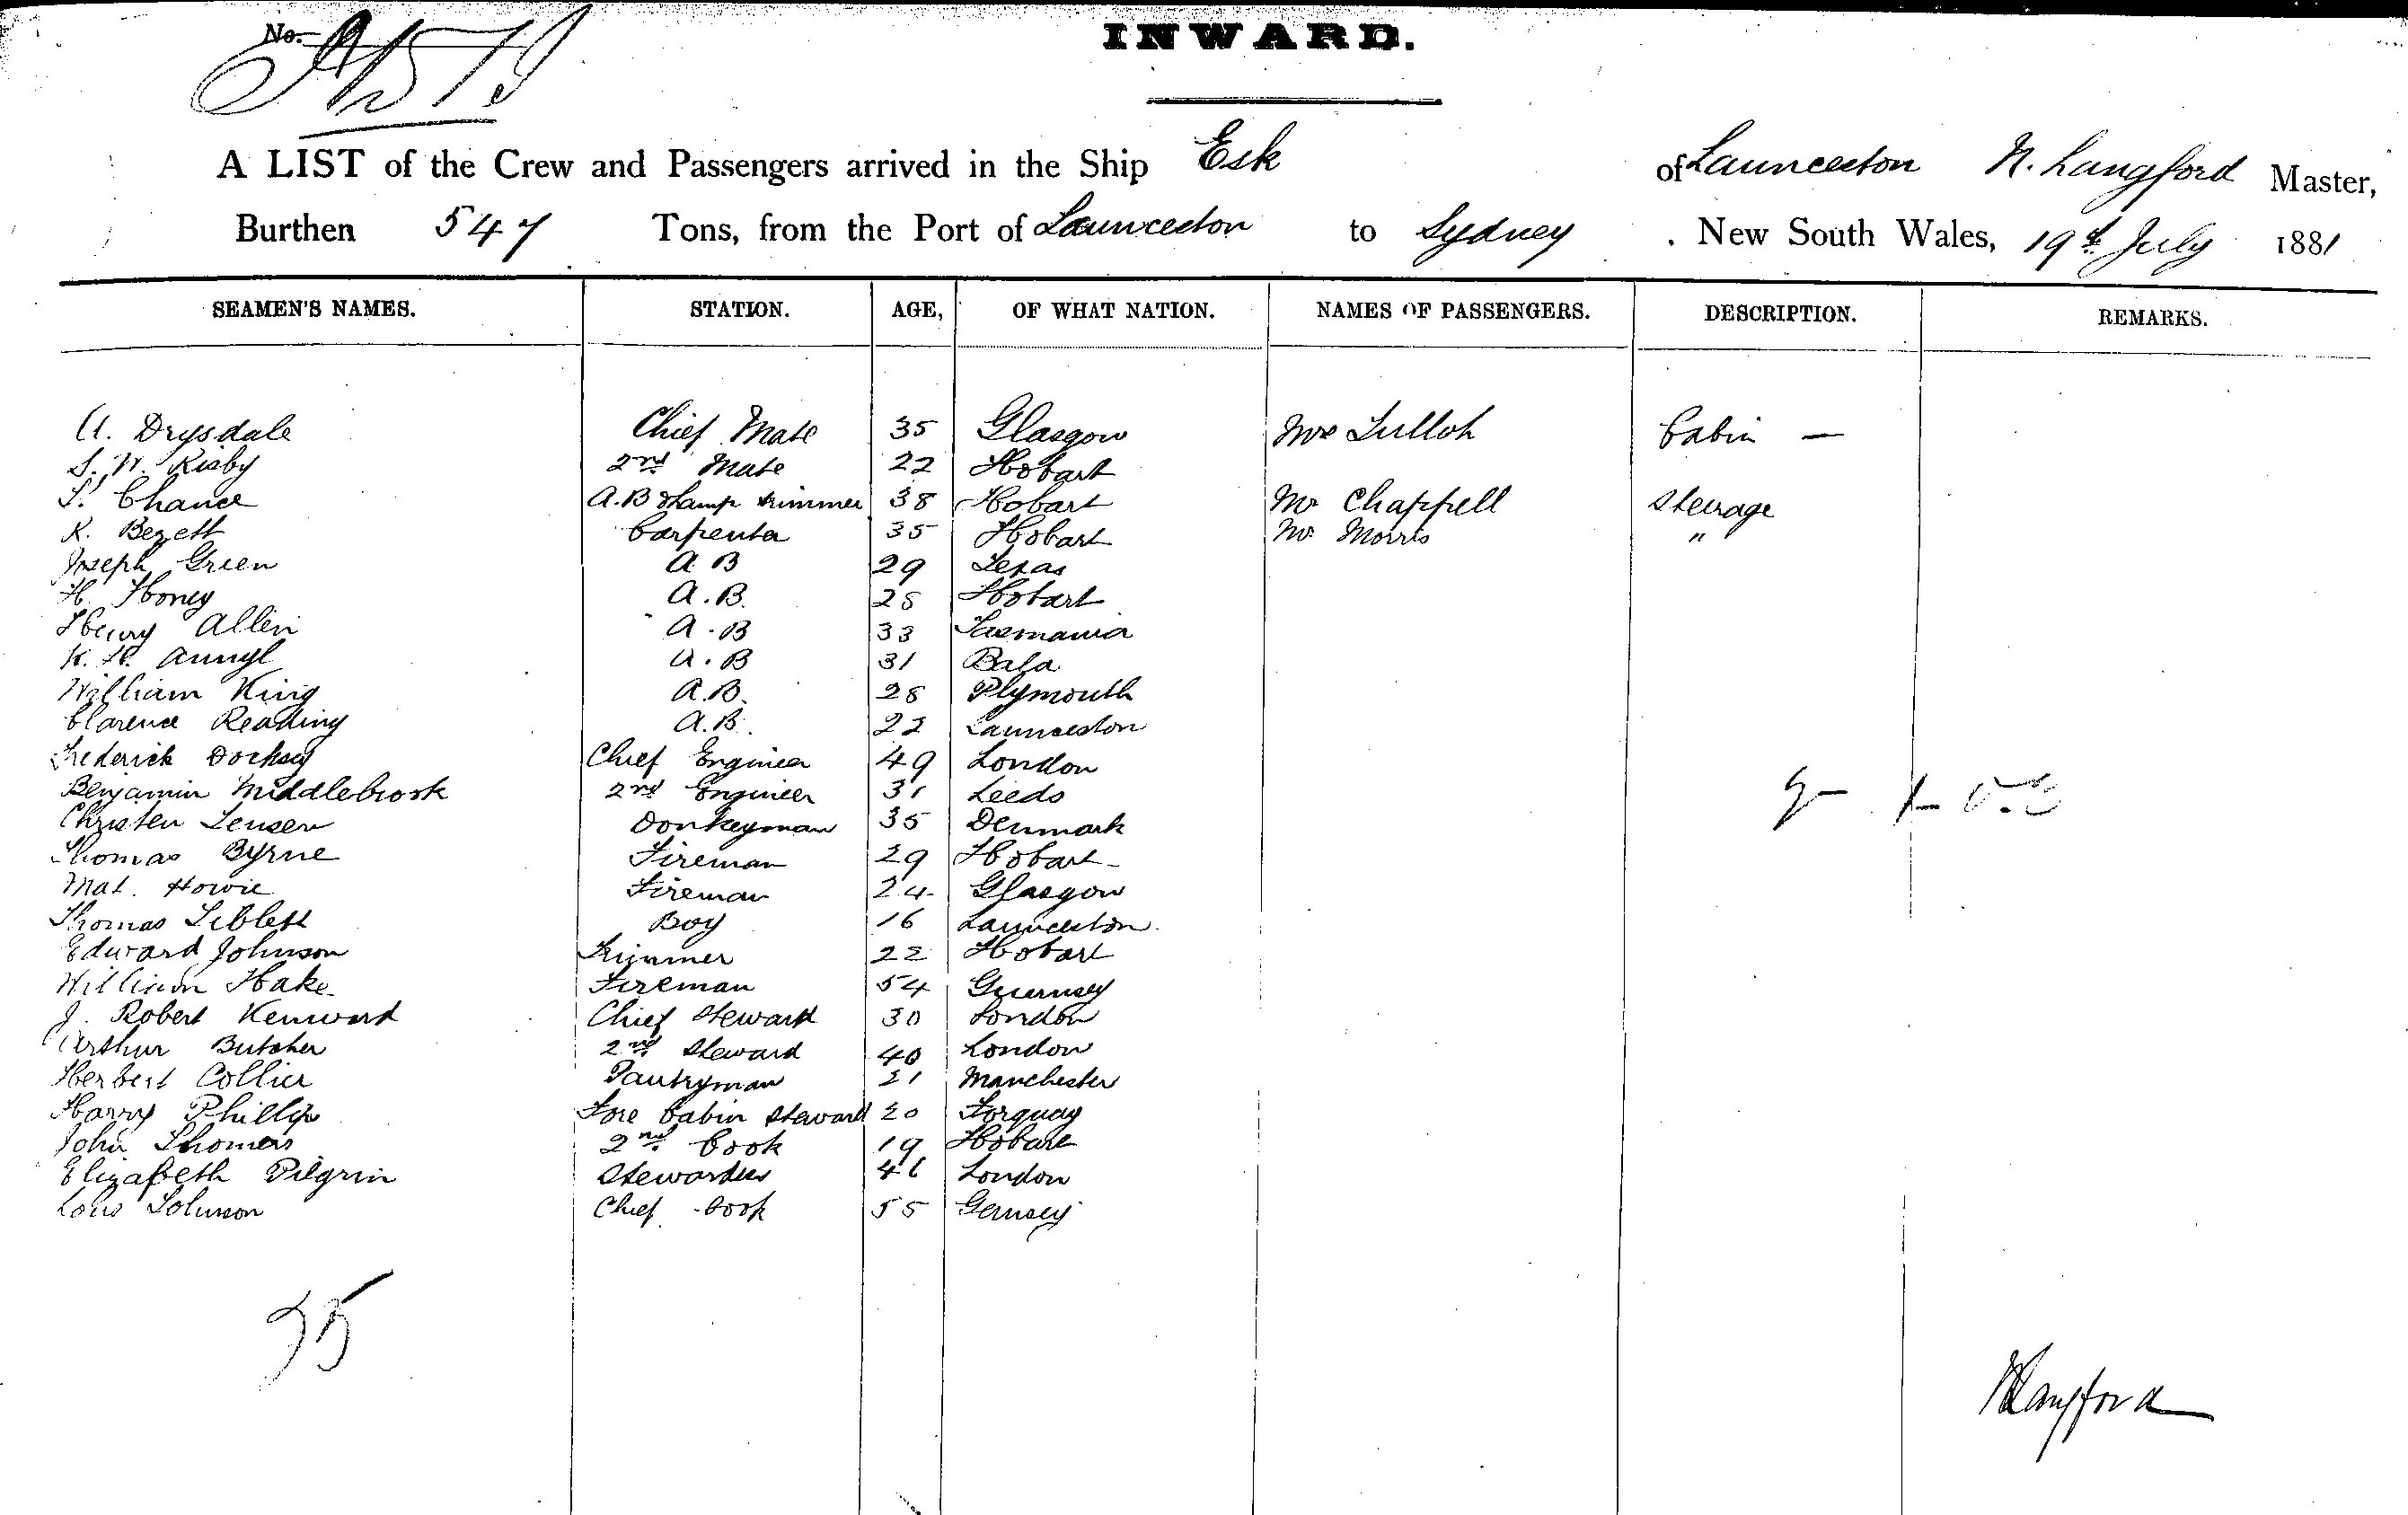 No.
INWARD.
A LIST of the Crew and Passengers arrived in the Ship Esk of Launceston N. Langford Master,
Burthen 547 Tons, from the Port of Launceston to Sydney . New South Wales, 19th July 1881
SEAMEN'S NAMES. STATION. AGE, OF WHAT NATION. NAMES OF PASSENGERS. DESCRIPTION. REMARKS.
A. Drysdale Chief Mate 35 Glasgow Mrs Tulloh Cabin —
S. W. Risby 2nd Mate 22 Hobart
T. Chance A.B & Lamp trimmer 38 Hobart Mr Chappell Steerage
K. Bezett Carpenter 35 Hobart Mr Morris "
Joseph Green A B 29 Texas
H. Honey A.B. 28 Hobart
Henry Allen A.B 33 Tasmania
K. H. A.B 31 Bala
William King A.B. 28 Plymouth
Clarence Reading A.B. 22 Launceston
Frederick Dorksey Chief Engineer 49 London
Benjamin Middlebrook 2nd Engineer 31 Leeds
Christen Jensen Donkeyman 35 Denmark
Thomas Byrne Fireman 29 Hobart
Mat. Howie Fireman 24 Glasgow
Thomas Liblett Boy 16 Launceston
Edward Johnson Trimmer 22 Hobart
William Hake Fireman 54 Guernsey
J. Robert Kenward Chief Steward 30 London
Arthur Butcher 2nd Steward 40 London
Herbert Collier Pantryman 21 Manchester
Harry Phillip Fore Cabin Steward 20 Torquay
John Thomas 2nd Cook 19 Hobart
Elizabeth Pilgrin Stewardess 46 London
Louis Solomon Chief Cook 55 Gernsey
25
NLangford